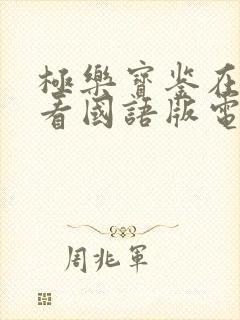 極樂寶鉴在
看國語版電
周兆軍